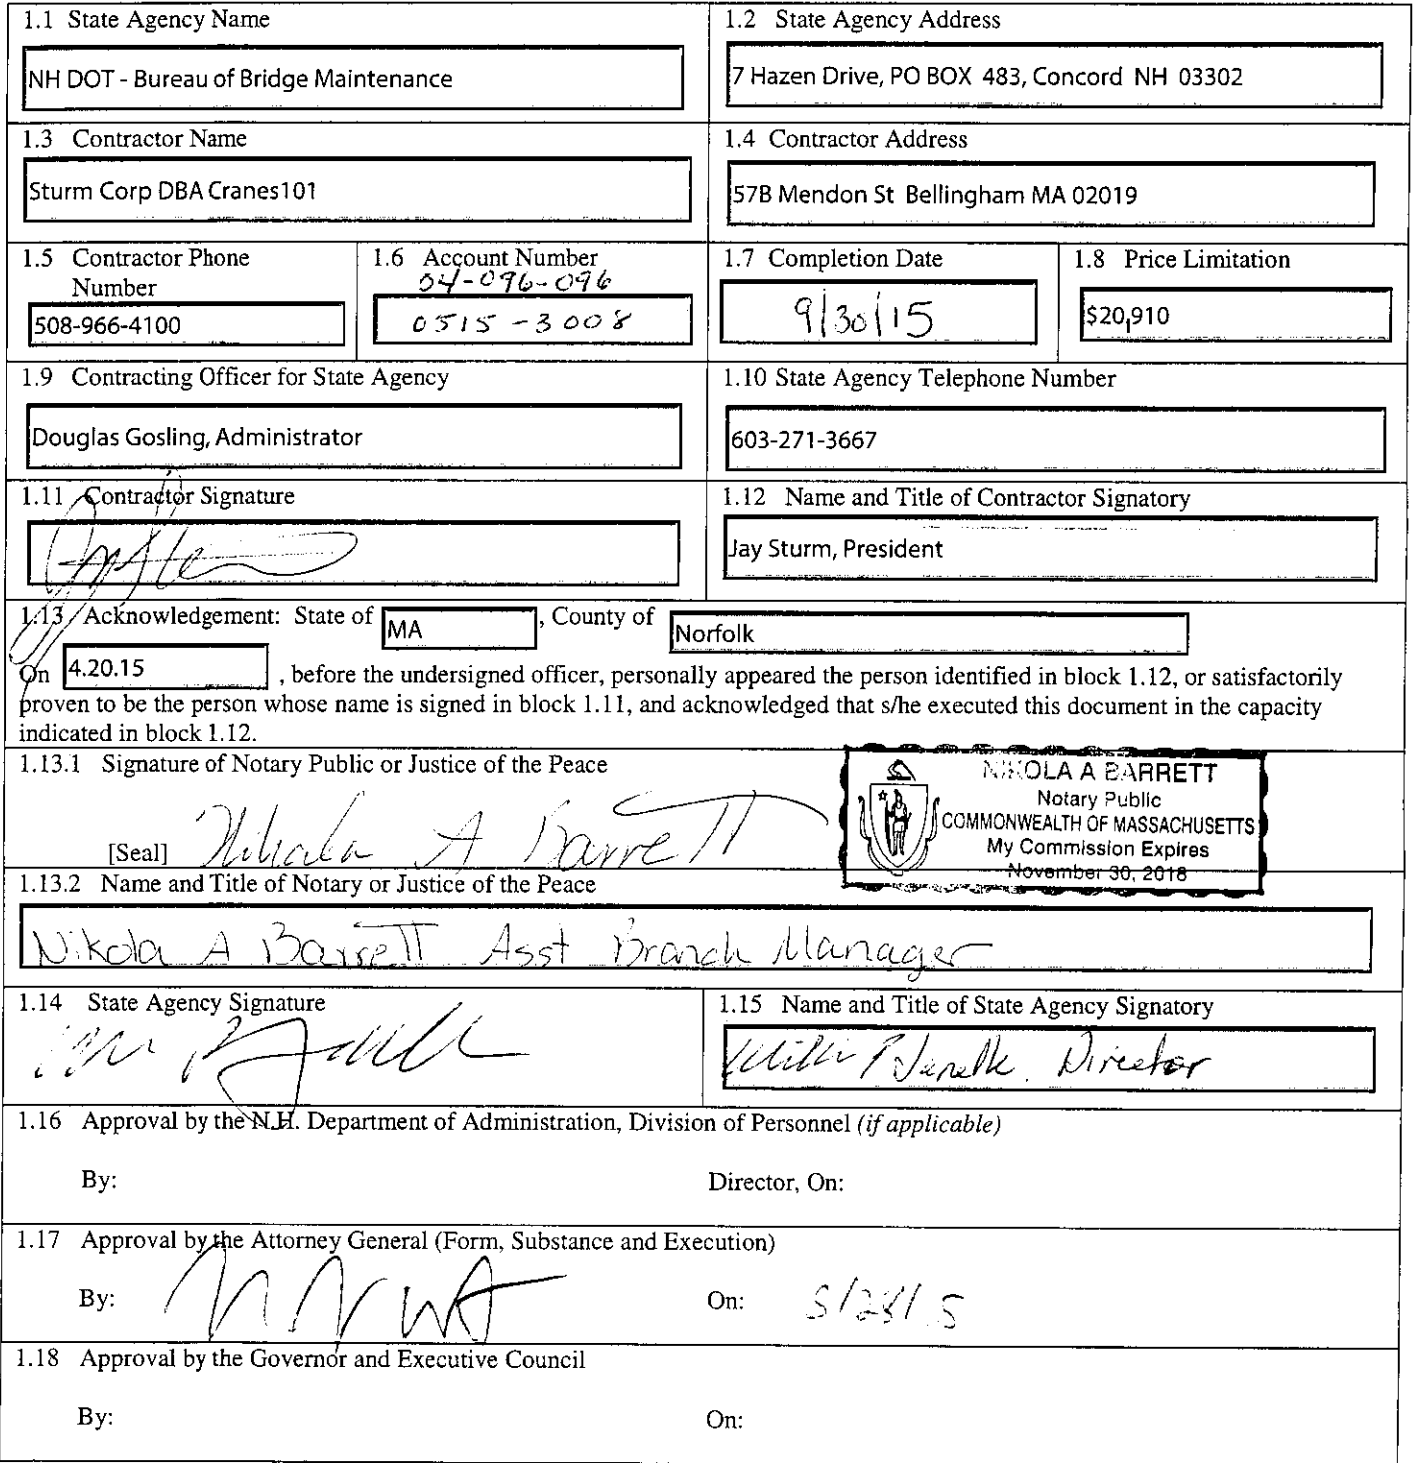 1.1 State Agency Name
NH DOT - Bureau of Bridge Maintenance
1.2 State Agency Address
7 Hazen Drive, PO BOX 483, Concord NH 03302
1.3 Contractor Name
Sturm Corp DBA Cranes101
1.4 Contractor Address
57B Mendon St Bellingham MA 02019
1.5 Contractor Phone
Number
508-966-4100
1.6 Account Number
04-096-096
0515-3008
1.7 Completion Date
9/30/15
1.8 Price Limitation
$20,910
1.9 Contracting Officer for State Agency
Douglas Gosling, Administrator
1.10 State Agency Telephone Number
603-271-3667
1.11 Contractor Signature
1.12 Name and Title of Contractor Signatory
Jay Sturm, President
1.13 Acknowledgement: State of MA, County of Norfolk
On 4.20.15, before the undersigned officer, personally appeared the person identified in block 1.12, or satisfactorily
proven to be the person whose name is signed in block 1.11, and acknowledged that s/he executed this document in the capacity
indicated in block 1.12.
1.13.1 Signature of Notary Public or Justice of the Peace
[Seal] Nikola A Barrett
NIKOLA A BARRETT
Notary Public
COMMONWEALTH OF MASSACHUSETTS
My Commission Expires
November 30, 2018
1.13.2 Name and Title of Notary or Justice of the Peace
Nikola A Barrett Asst Branch Manager
1.14 State Agency Signature
1.15 Name and Title of State Agency Signatory
Director
1.16 Approval by the N.H. Department of Administration, Division of Personnel (if applicable)
By: Director, On:
1.17 Approval by the Attorney General (Form, Substance and Execution)
By: On:
1.18 Approval by the Governor and Executive Council
By: On: